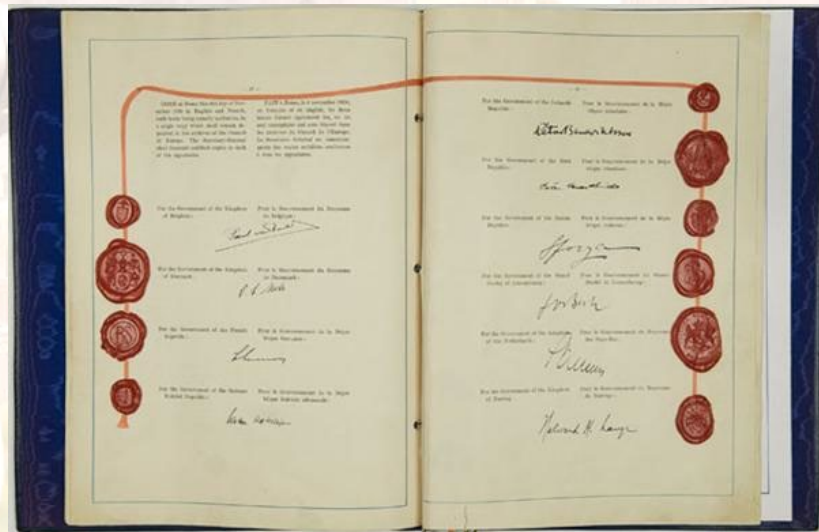 DONE at Rome this 4th day of Novem-
ber 1950 in English and French,
both texts being equally authentic, in
a single copy which shall remain de-
posited in the archives of the Council
of Europe. The Secretary-General
shall transmit certified copies to each
of the signatories.
FAIT à Rome, le 4 novembre 1950,
en français et en anglais, les deux
textes faisant également foi, en un
seul exemplaire qui sera déposé dans
les archives du Conseil de l'Europe.
Le Secrétaire Général en communi-
quera des copies certifiées conformes
à tous les signataires.
For the Government of the Kingdom
of Belgium:
Pour le Gouvernement du Royaume
de Belgique:
For the Government of the Kingdom
of Denmark:
Pour le Gouvernement du Royaume
de Danemark:
For the Government of the French
Republic:
Pour le Gouvernement de la Répu-
blique française:
For the Government of the German
Federal Republic:
Pour le Gouvernement de la Répu-
blique fédérale allemande:
For the Government of the Icelandic
Republic:
Pour le Gouvernement de la Répu-
blique islandaise:
For the Government of the Irish
Republic:
Pour le Gouvernement de la Répu-
blique irlandaise:
For the Government of the Italian
Republic:
Pour le Gouvernement de la Répu-
blique italienne:
Sforza
For the Government of the Grand
Duchy of Luxembourg:
Pour le Gouvernement du Grand
Duché de Luxembourg:
Jos Bech
For the Government of the Kingdom
of the Netherlands:
Pour le Gouvernement du Royaume
des Pays-Bas:
For the Government of the Kingdom
of Norway:
Pour le Gouvernement du Royaume
de Norvège:
Halvard M. Lange